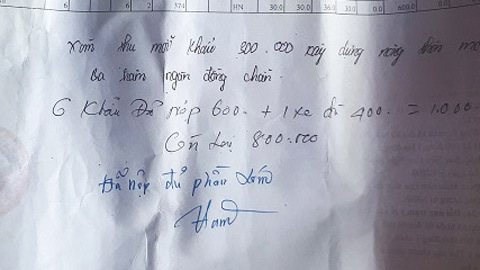 6 2 574 HN 30.0 30.0 36.0 30.0 0 600.0 0
xóm thu mỗi khẩu 300.000 xây dựng nông thôn
Ba trăm ngàn đồng chẵn.
6 Khẩu Đã nộp 600. + 1 xe đi 400. = 1.000.
Còn Lại 800.000
Đã nộp đủ phần xóm